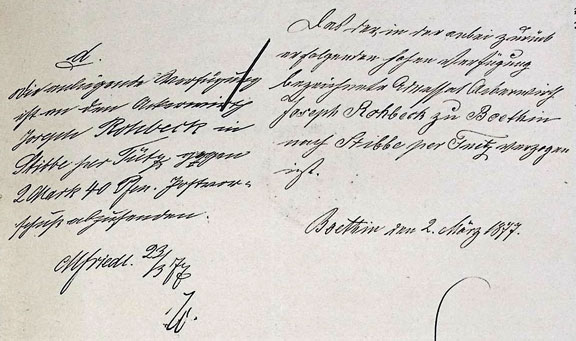 d.
Die anliegende Verfügung
ist an den Ackerwirth
Joseph Rohbeck in
Stibbe per Tütz gegen
2 Mark 40 Pfen. Postvor-
schuß abzusenden.
Mfriedl. 23/3 77
Daß der in der anbei zurück
erfolgenden hohen Verfügung
bezeichnete Ackerwirth
Joseph Rohbeck zu Boethin
nach Stibbe per Tuetz verzogen
ist.
Boethin den 2. März 1877.